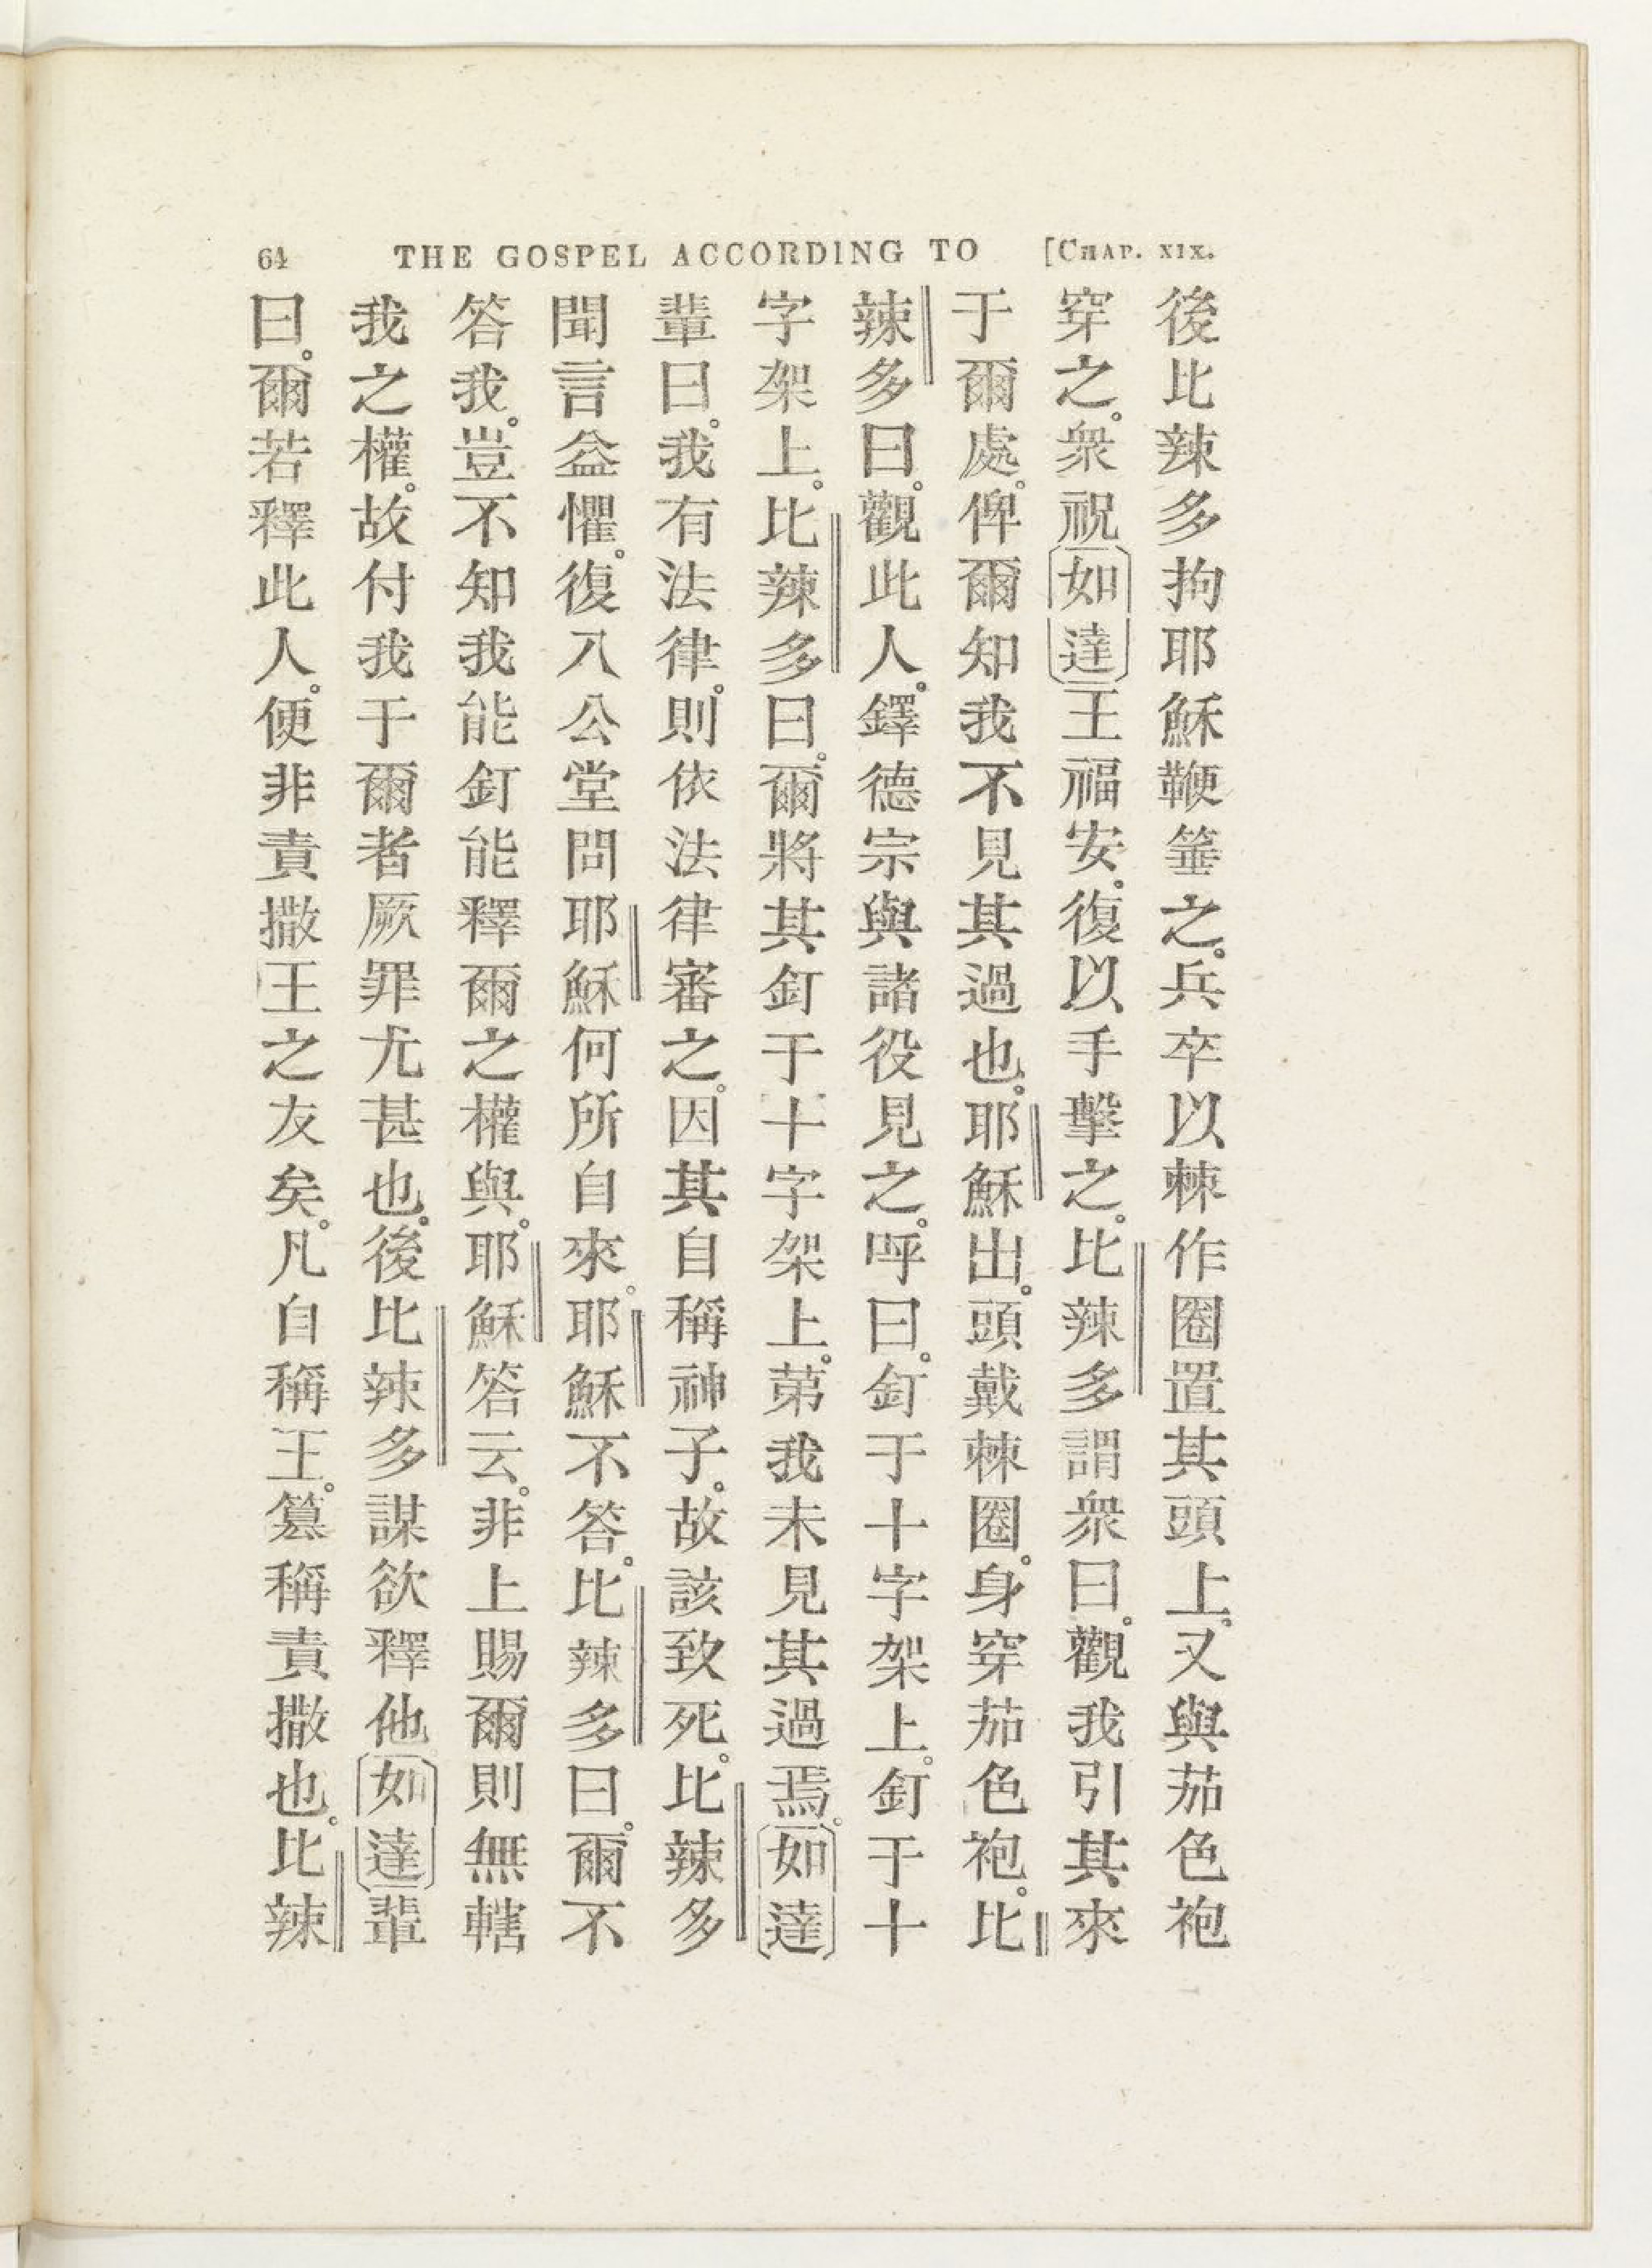 64 THE GOSPEL ACCORDING TO [CHAP. XIX.
後比辣多拘耶穌鞭箠之。兵卒以棘作圈置其頭上。又與茄色袍
穿之。衆祝如達王福安。復以手擊之。比辣多謂衆曰。觀我引其來
于爾處。俾爾知我不見其過也。耶穌出。頭戴棘圈。身穿茄色袍。比
辣多曰。觀此人。鐸德宗與諸役見之。呼曰。釘于十字架上。釘于十
字架上。比辣多曰。爾將其釘于十字架上。第我未見其過焉。如達
輩曰。我有法律。則依法律審之。因其自稱神子。故該致死。比辣多
聞言益懼。復入公堂問耶穌何所自來。耶穌不答。比辣多曰。爾不
答我。豈不知我能釘能釋爾之權與。耶穌答云。非上賜爾則無轄
我之權。故付我于爾者厥罪尤甚也。後比辣多謀欲釋他如達輩
曰。爾若釋此人。便非責撒王之友矣。凡自稱王。篡稱責撒也。比辣